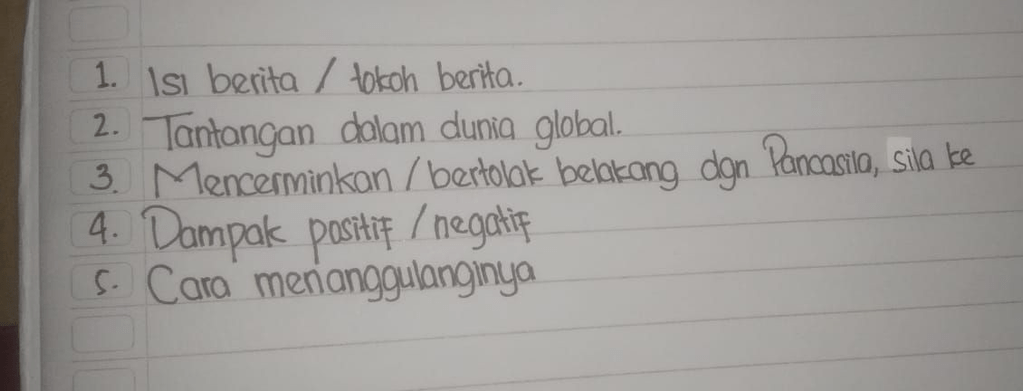 1. Isi berita / tokoh berita.
2. Tantangan dalam dunia global.
3. Mencerminkan / bertolak belakang dgn Pancasila, sila ke
4. Dampak positif / negatif
5. Cara menanggulanginya